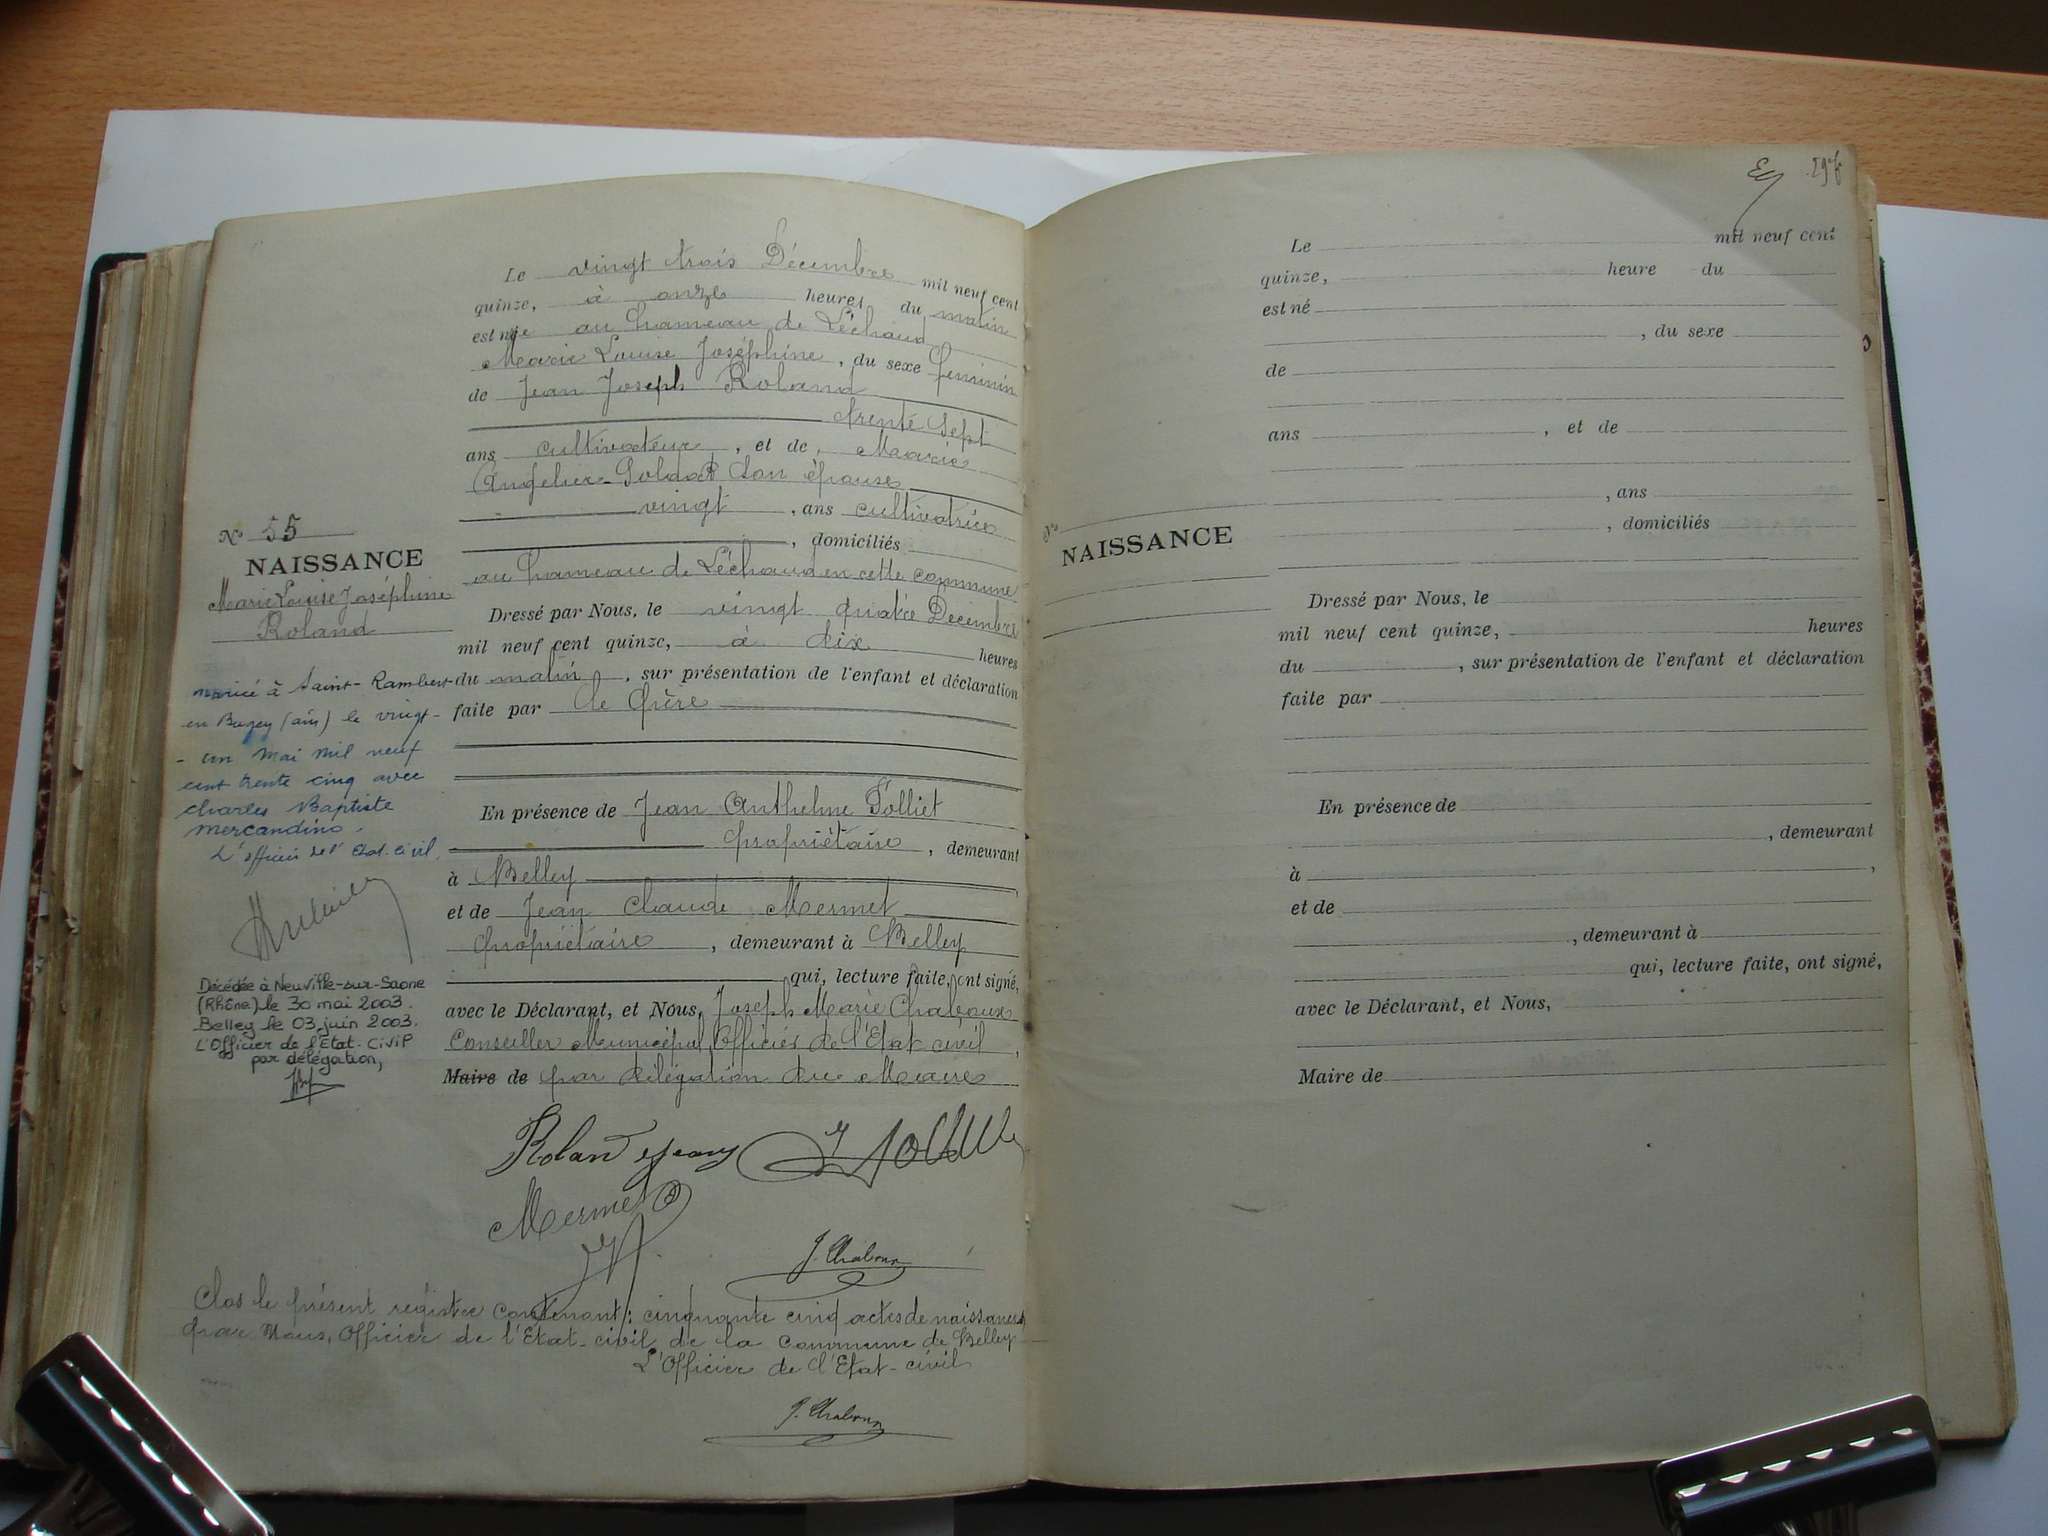 Le vingt trois Décembre mil neuf cent
quinze, à onze heures du matin
est née au hameau de Léchaud
Marie Louise Joséphine, du sexe féminin
de Jean Joseph Roland
trente sept
ans cultivateur, et de Marie
son épouse
vingt, ans cultivatrice
, domiciliés
au hameau de Léchaud en cette commune
Dressé par Nous, le vingt quatre Décembre
mil neuf cent quinze, à dix heures
du matin, sur présentation de l'enfant et déclaration
faite par le Père
En présence de Jean Anthelme Tolliet
propriétaire, demeurant
à Belley,
et de Jean Claude Mermet
propriétaire, demeurant à Belley
qui, lecture faite, ont signé,
avec le Déclarant, et Nous, Joseph Marie Chaboux
Conseiller Municipal Officier de l'Etat civil,
Maire de par délégation du Maire
Roland Jean
Mermet
J. Chaboux
N° 55
NAISSANCE
Marie Louise Joséphine
Roland
mariée à Saint-Rambert
en Bugey (ain) le vingt-
- un mai mil neuf
cent trente cinq avec
Charles Baptiste
Mercandino.
L'officier de l'Etat-civil,
Décédée à Neuville-sur-Saone
(Rhône) le 30 mai 2003.
Belley le 03 juin 2003.
L'Officier de l'Etat-Civil
par délégation,
Clos le présent registre contenant : cinquante cinq actes de naissances
par Nous, Officier de l'Etat-civil de la commune de Belley
L'Officier de l'Etat-civil
J. Chaboux
Le mil neuf cent
quinze, heure du
est né
, du sexe
de
ans , et de
, ans
, domiciliés
N°
NAISSANCE
Dressé par Nous, le
mil neuf cent quinze, heures
du , sur présentation de l'enfant et déclaration
faite par
En présence de
, demeurant
à ,
et de
, demeurant à
qui, lecture faite, ont signé,
avec le Déclarant, et Nous,
Maire de